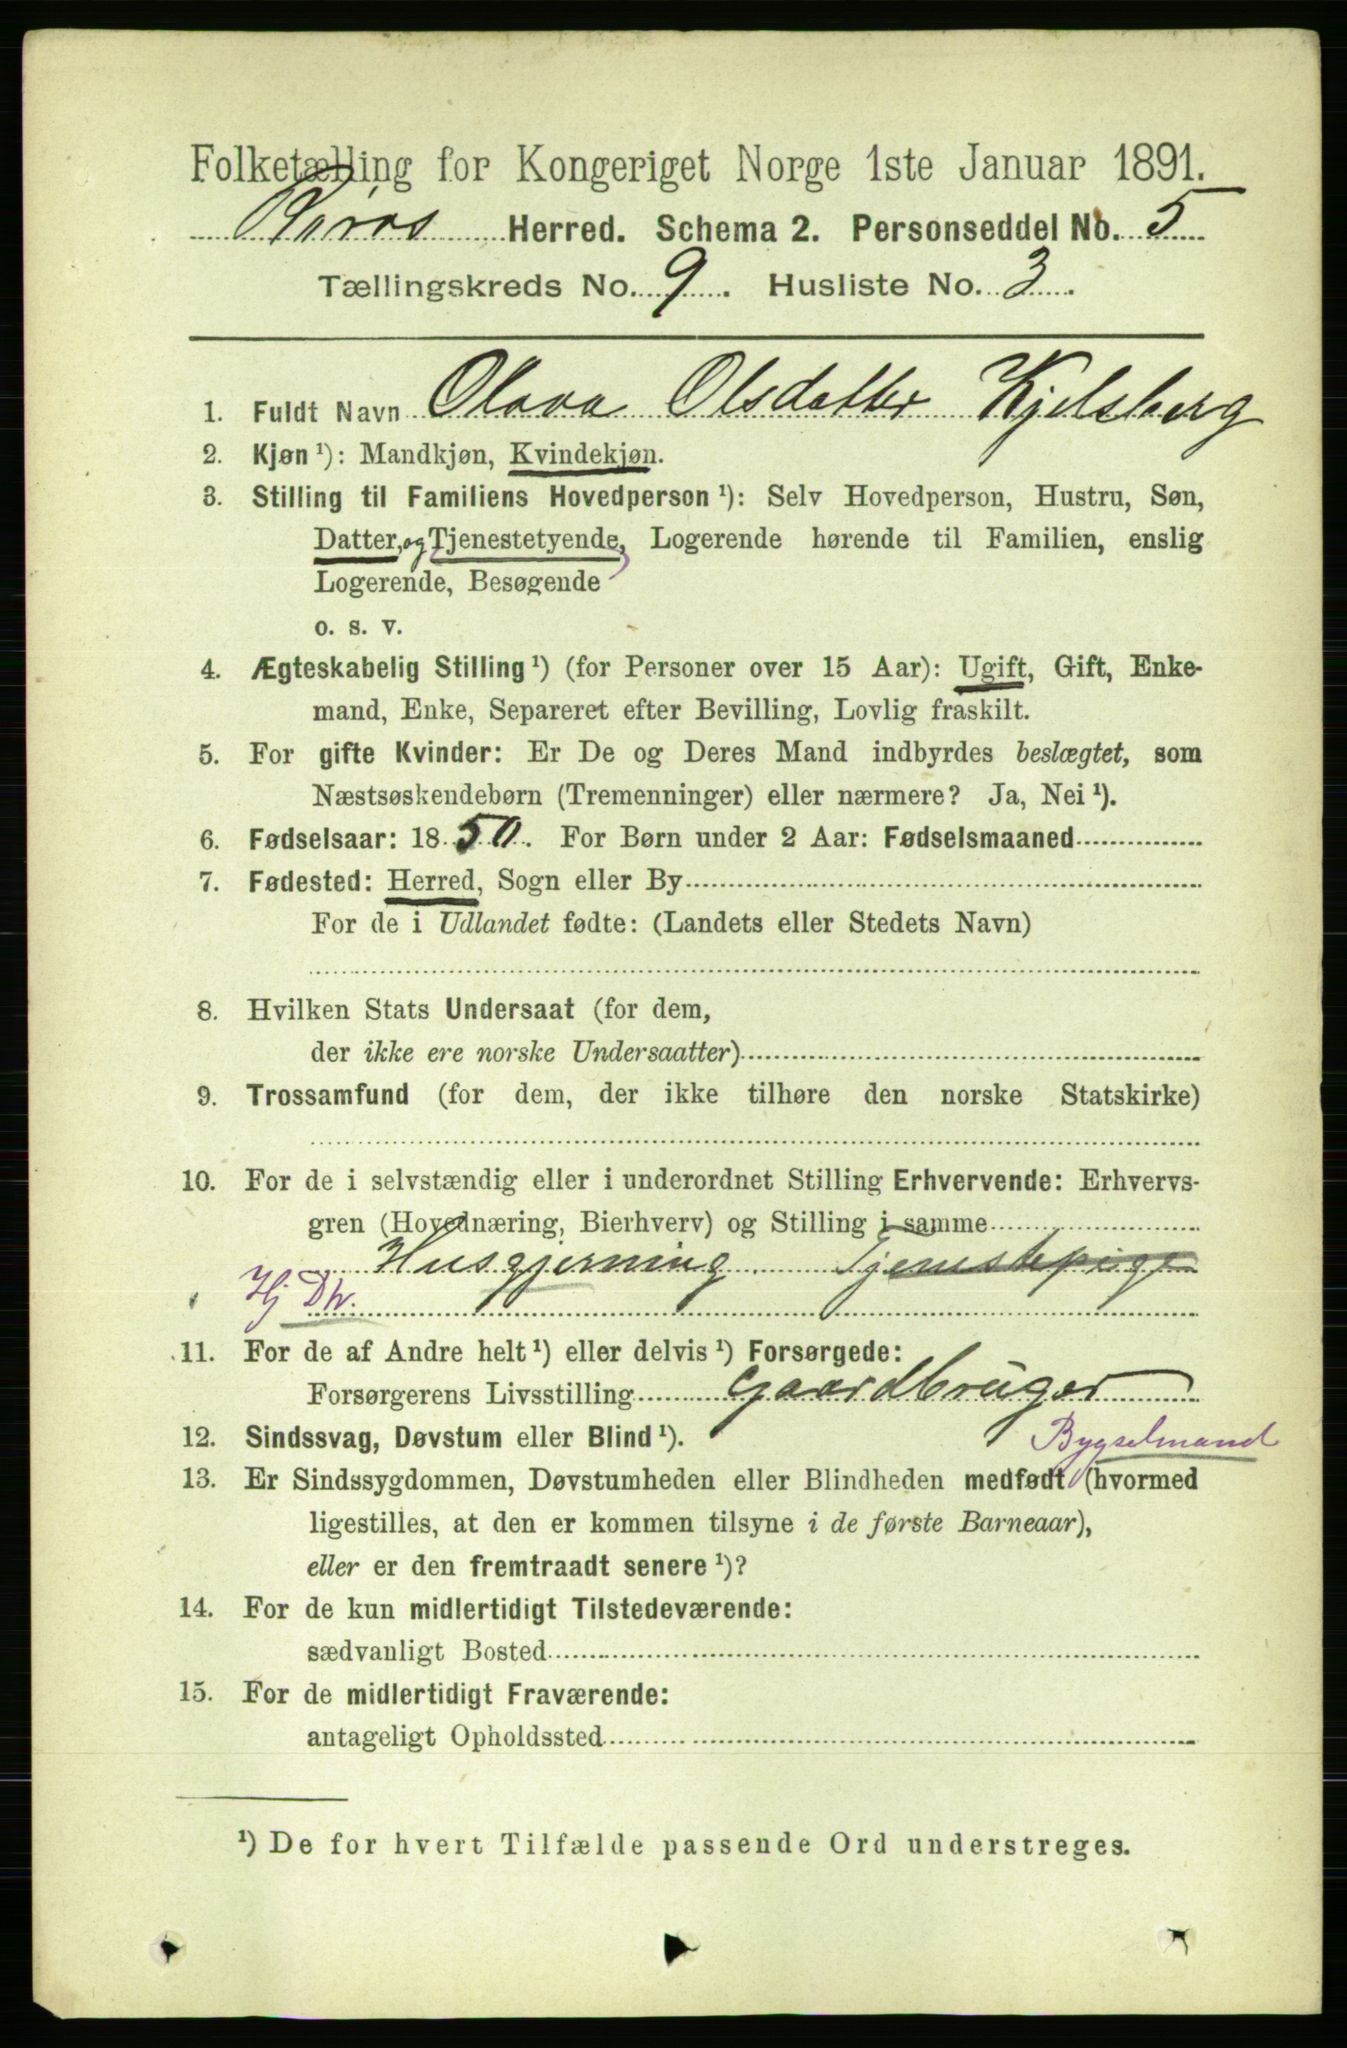 Folketælling for Kongeriget Norge 1ste Januar 1891.
Røros Herred. Schema 2. Personseddel No. 5
Tællingskreds No. 9. Husliste No. 3.
1. Fuldt Navn Olava Olsdatter Kjelsberg
2. Kjøn ¹): Mandkjøn, Kvindekjøn.
3. Stilling til Familiens Hovedperson ¹): Selv Hovedperson, Hustru, Søn,
Datter, og Tjenestetyende, Logerende hørende til Familien, enslig
Logerende, Besøgende
o. s. v.
4. Ægteskabelig Stilling ¹) (for Personer over 15 Aar): Ugift, Gift, Enke-
mand, Enke, Separeret efter Bevilling, Lovlig fraskilt.
5. For gifte Kvinder: Er De og Deres Mand indbyrdes beslægtet, som
Næstsøskendebørn (Tremenninger) eller nærmere? Ja, Nei ¹).
6. Fødselsaar: 1850. For Børn under 2 Aar: Fødselsmaaned
7. Fødested: Herred, Sogn eller By
For de i Udlandet fødte: (Landets eller Stedets Navn)
8. Hvilken Stats Undersaat (for dem,
der ikke ere norske Undersaatter)
9. Trossamfund (for dem, der ikke tilhøre den norske Statskirke)
10. For de i selvstændig eller i underordnet Stilling Erhvervende: Erhvervs-
gren (Hovednæring, Bierhverv) og Stilling i samme
Husgjerning Tjenestepige
Hj Dtr.
11. For de af Andre helt ¹) eller delvis ¹) Forsørgede:
Forsørgerens Livsstilling Gaardbruger
12. Sindssvag, Døvstum eller Blind ¹). Bygselmand
13. Er Sindssygdommen, Døvstumheden eller Blindheden medfødt (hvormed
ligestilles, at den er kommen tilsyne i de første Barneaar),
eller er den fremtraadt senere ¹)?
14. For de kun midlertidigt Tilstedeværende:
sædvanligt Bosted
15. For de midlertidigt Fraværende:
antageligt Opholdssted
¹) De for hvert Tilfælde passende Ord understreges.